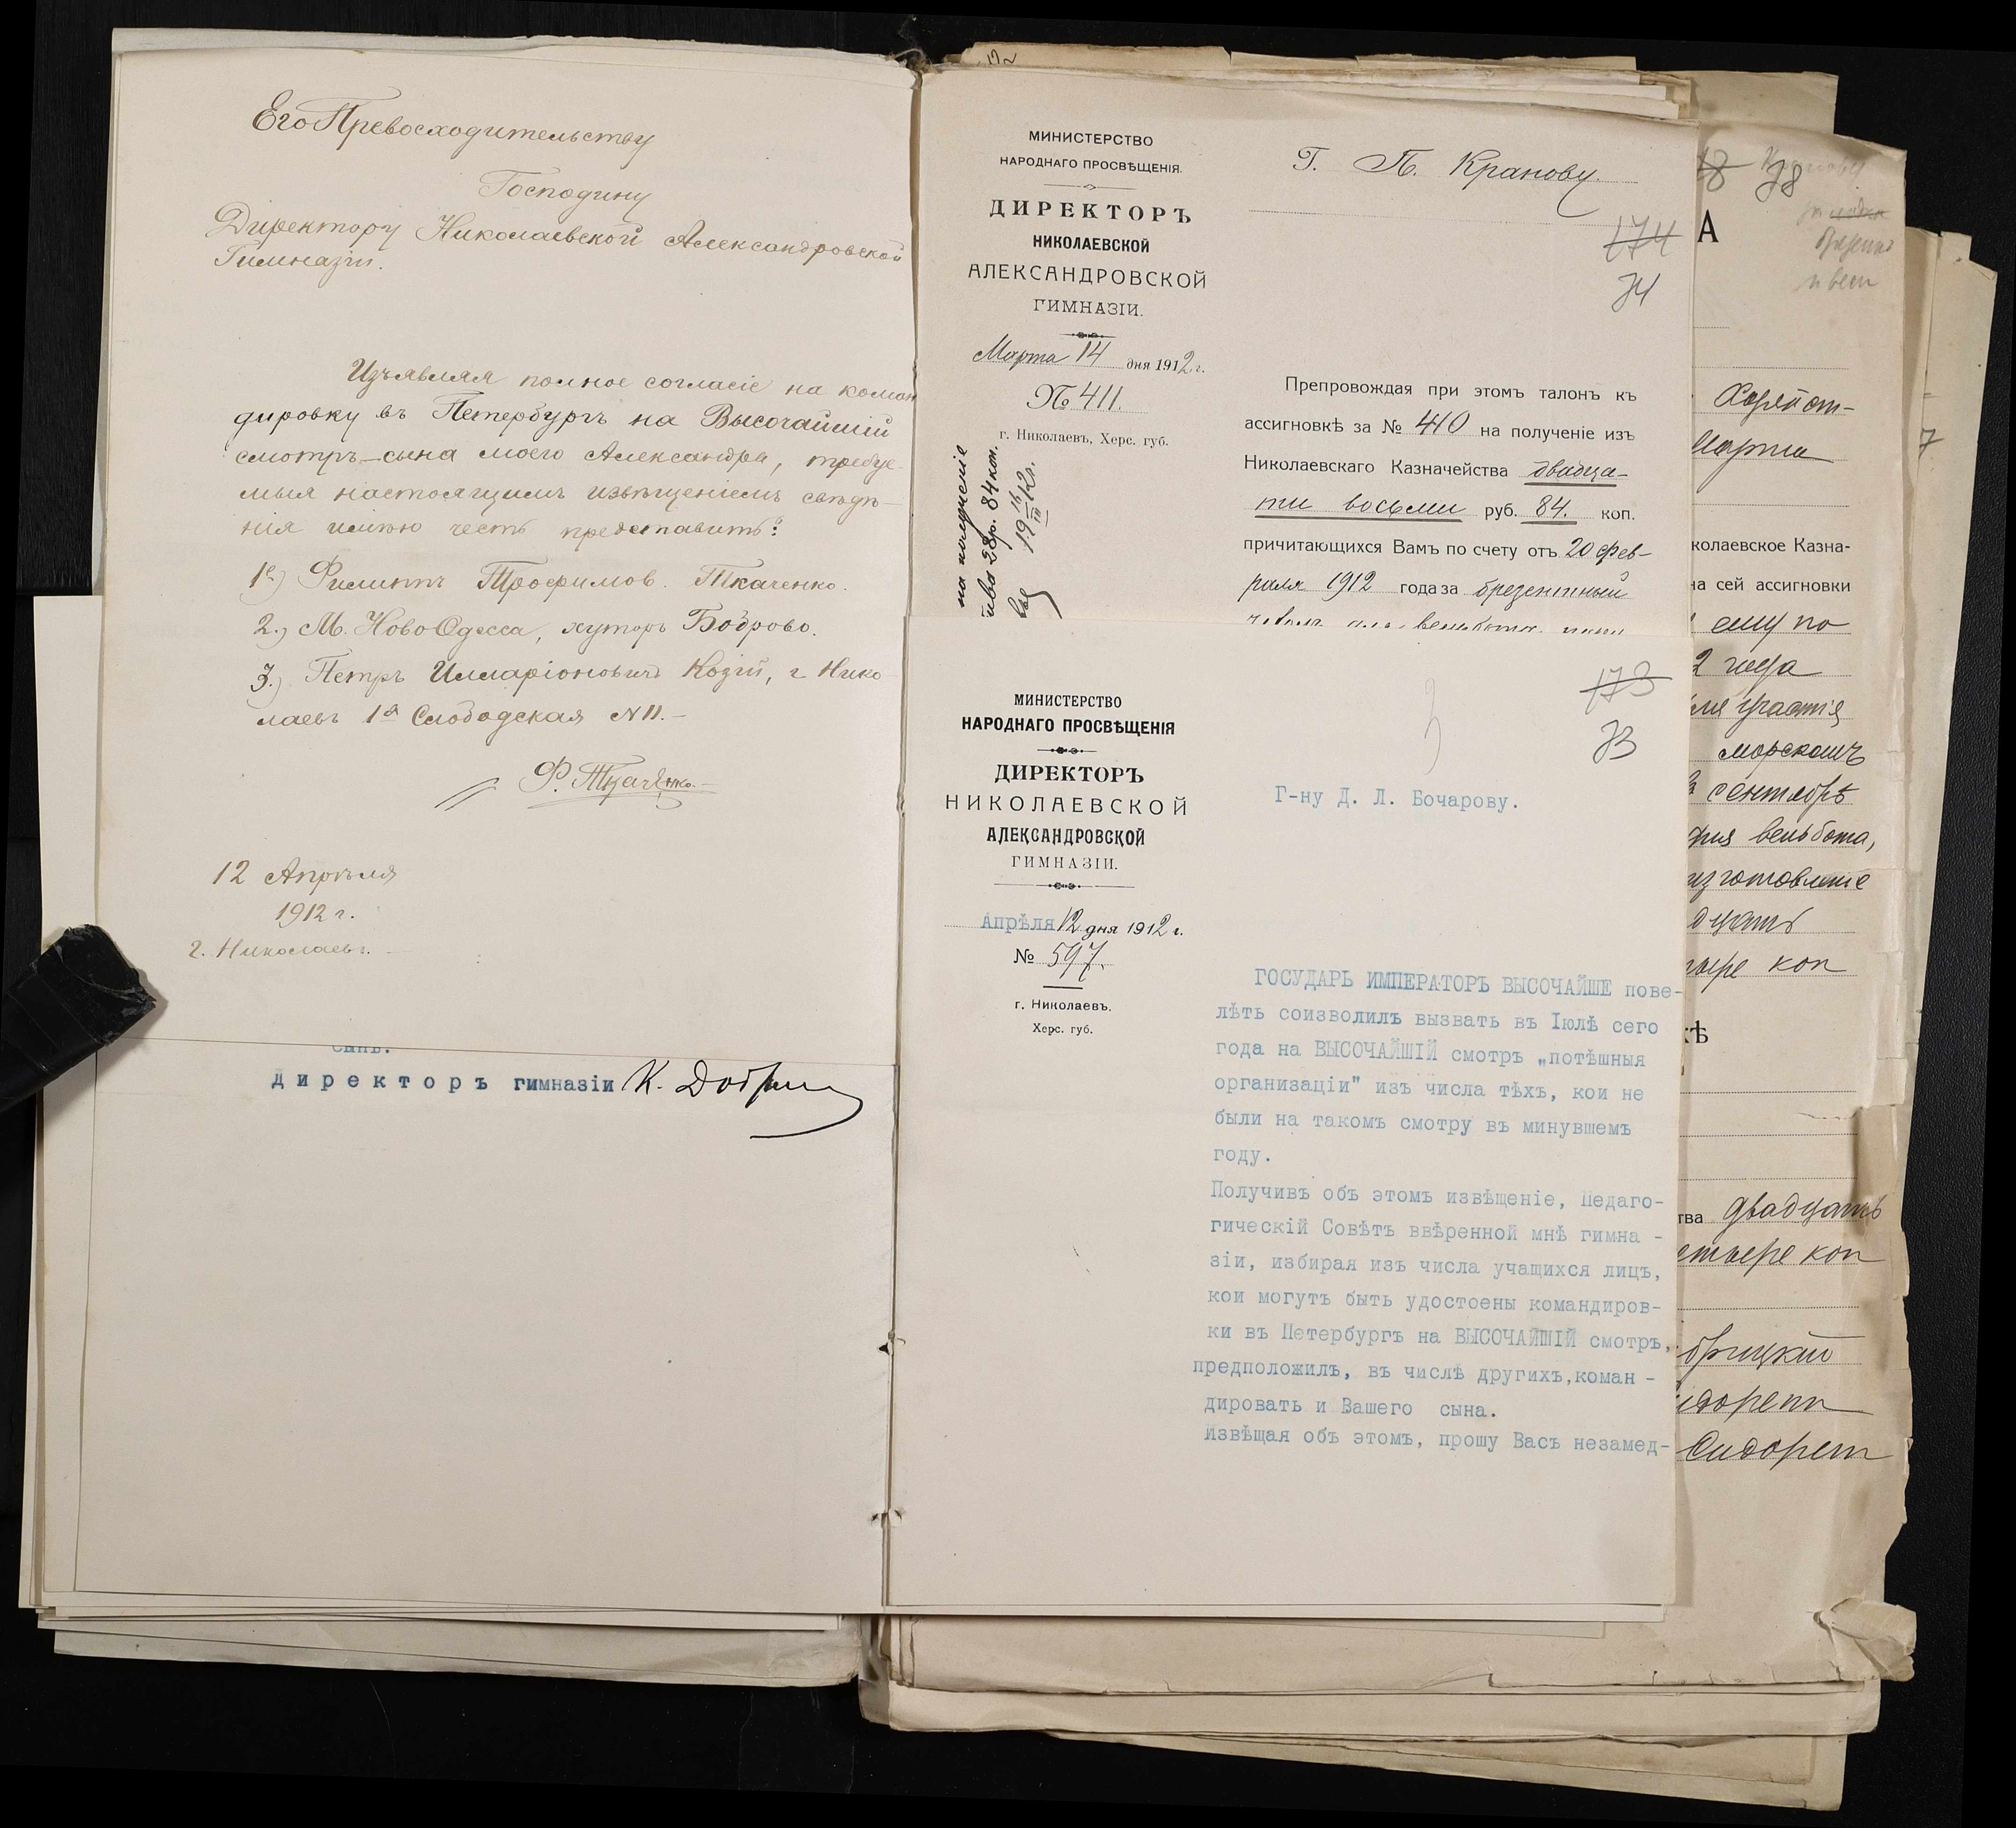 Его Превосходительству
Господину
Директору Николаевской Александровской
Гимназіи.
Изъявляя полное согласіе на коман
дировку въ Петербургъ на Высочайшій
смотръ – сына моего Александра, требуе-
мыя настоящимъ извѣщеніемъ свѣдѣ-
нія имѣю честь представить:
1е) Филиппъ Трофимов. Ткаченко.
2.) М. Ново Одесса, хуторъ Бодрово.
3.) Петръ Илларіоновичъ Козій, г. Нико
лаевъ 1я Слободская N 11.–
Ф. Ткаченко.–
12 Апрѣля
1912 г.
г. Николаевъ.
сынъ.
Директоръ гимназіи К.
МИНИСТЕРСТВО
НАРОДНАГО ПРОСВѢЩЕНІЯ.
ДИРЕКТОРЪ
НИКОЛАЕВСКОЙ
АЛЕКСАНДРОВСКОЙ
ГИМНАЗІИ.
Марта 14 дня 1912 г.
№ 411.
г. Николаевъ, Херс. губ.
на полученіе
28 р. 84 коп.
Г. П. Кранову.
174
74
Препровождая при этомъ талонъ къ
ассигновкѣ за № 410 на полученіе изъ
Николаевскаго Казначейства двадца-
ти восьми руб. 84. коп.
причитающихся Вамъ по счету отъ 20 фев-
раля 1912 года за брезентный
МИНИСТЕРСТВО
НАРОДНАГО ПРОСВѢЩЕНІЯ
ДИРЕКТОРЪ
НИКОЛАЕВСКОЙ
АЛЕКСАНДРОВСКОЙ
ГИМНАЗІИ.
Апрѣля 12 дня 1912 г.
№ 597.
г. Николаевъ.
Херс. губ.
173
73
Г-ну Д. Л. Бочарову.
ГОСУДАРЬ ИМПЕРАТОРЪ ВЫСОЧАЙШЕ пове-
лѣть соизволилъ вызвать въ Іюлѣ сего
года на ВЫСОЧАЙШІЙ смотръ „потѣшныя
организаціи" изъ числа тѣхъ, кои не
были на такомъ смотру въ минувшемъ
году.
Получивъ объ этомъ извѣщеніе, Педаго-
гическій Совѣтъ ввѣренной мнѣ гимна -
зіи, избирая изъ числа учащихся лицъ,
кои могутъ быть удостоены командиров-
ки въ Петербургъ на ВЫСОЧАЙШІЙ смотръ,
предположилъ, въ числѣ другихъ, коман -
дировать и Вашего сына.
Извѣщая объ этомъ, прошу Васъ незамед-
78
А
Марта
7
колаевское Казна-
на сей ассигновки
ему по
2 года
участія
морскомъ
сентябрѣ
вельбота,
изготовленіе
дцать
тыре коп
кѣ
тва двадцать
етыре коп